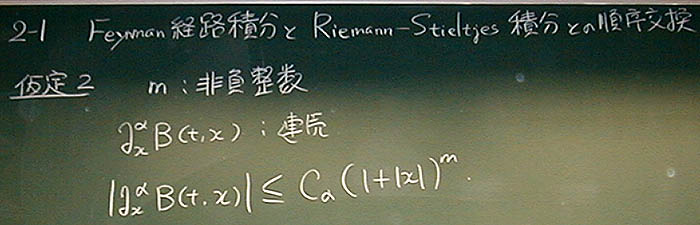 2-1 Feynman 経路積分と Riemann-Stieltjes 積分との順序交換
仮定2 m : 非負整数
∂ₓ^α B(t,x) : 連続
|∂ₓ^α B(t,x)| ≦ C_α (1+|x|)^m.